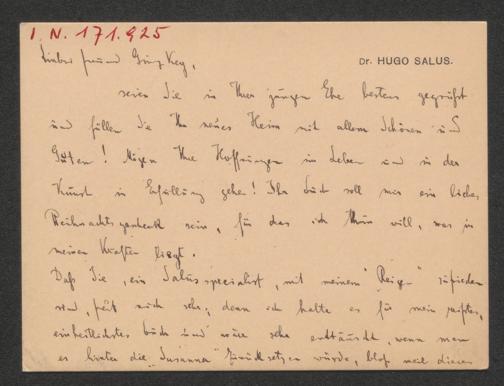 I. N. 171.925
Dr. HUGO SALUS.
Lieber Freund Ginzkey,
seien Sie in Ihrer jungen Ehe bestens gegrüßt
und füllen Sie Ihr neues Heim mit allem Schönen und
Guten! Mögen Ihre Hoffnungen im Leben und in der
Kunst in Erfüllung gehen! Ihr Buch soll mir ein liebes
Weihnachtsgeschenk sein, für das ich thun will, was in
meinen Kräften liegt.
Daß Sie, ein Salusspecialist, mit meinem "Reigen" zufrieden
sind, freut mich sehr, denn ich halte es für mein
einheitlichstes Buch und wäre sehr enttäuscht, wenn man
es hinter die "Susanna" zurücksetzen würde, bloß weil dieses